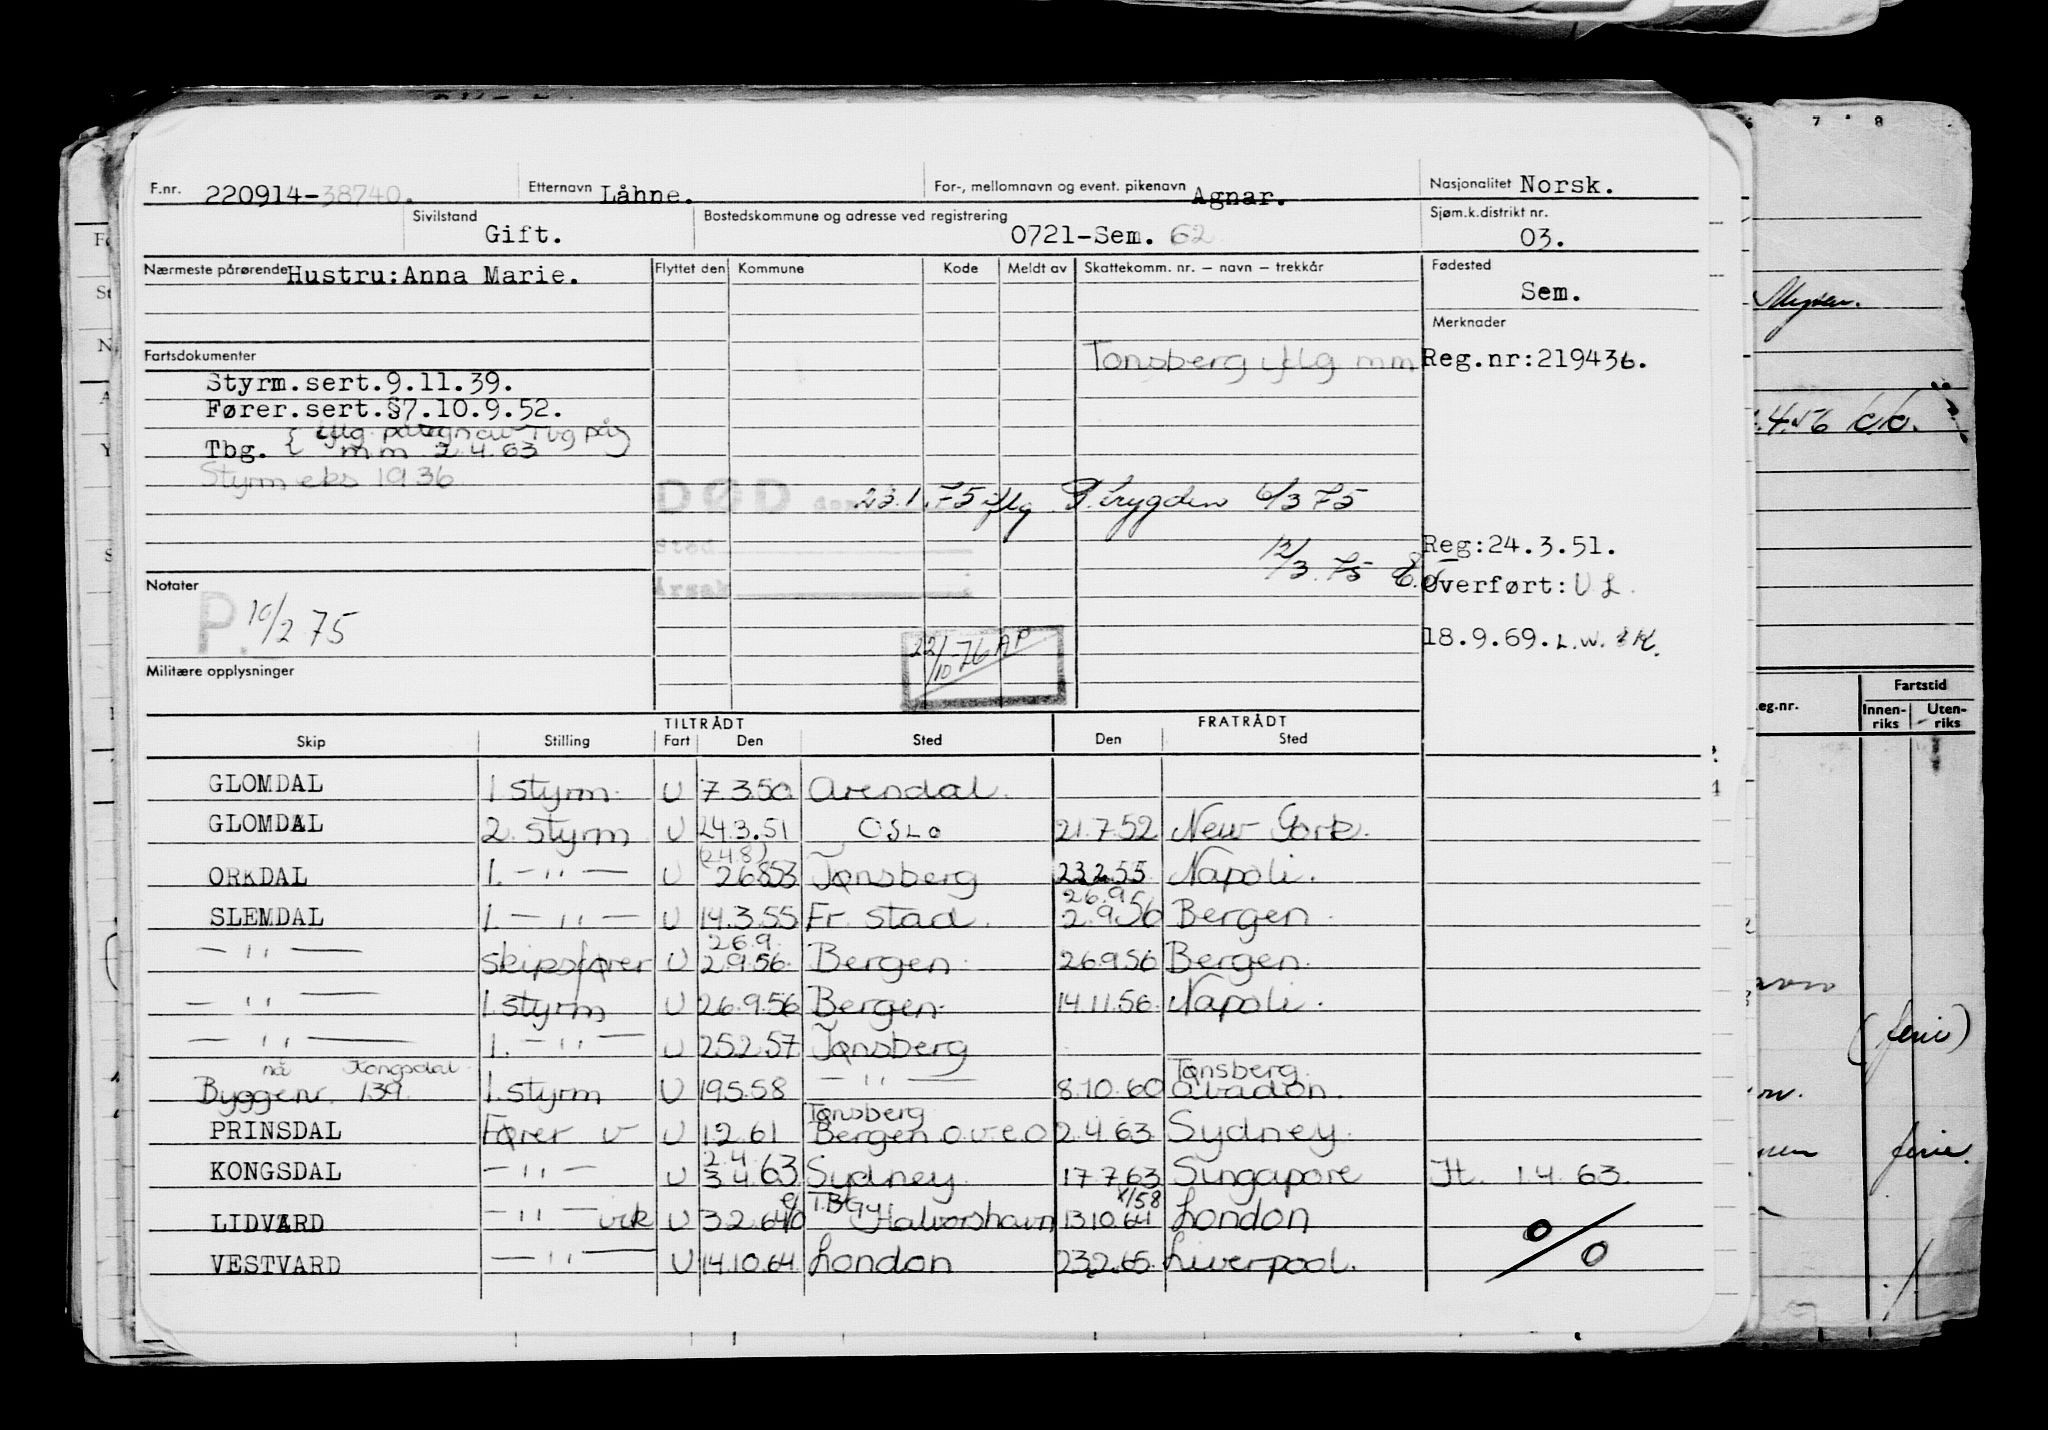 F.nr. 220914-38740. Etternavn Låhne. For-, mellomnavn og event. pikenavn Agnar. Nasjonalitet Norsk.
Sivilstand Gift. Bostedskommune og adresse ved registrering 0721-Sem. 62 Sjøm.k.distrikt nr. 03.
Nærmeste pårørende Hustru:Anna Marie. Flyttet den Kommune Kode Meldt av Skattekomm. nr. — navn — trekkår Fødested
Sem.
Merknader
Fartsdokumenter Tonsberg iflg mm Reg.nr:219436.
Styrm.sert.9.11.39.
Fører.sert.§7.10.9.52.
Tbg. { iflg. Tbg
mm 2.4.63
Styrm eks 1936
DØD den 23.1.75 iflg P.trygden 6/3 75
Sted Reg:24.3.51.
12/3.75
Årsak Overført: U L.
Notater
P. 10/2 75
22/10-76 AP 18.9.69. L.W.
Militære opplysninger
TILTRÅDT FRATRÅDT
Skip Stilling Fart Den Sted Den Sted
GLOMDAL 1. styrm. U 7.3.50 Arendal.
GLOMDAL 2. styrm U 24.3.51 OSLO 21.7.52 New York.
(24.8)
ORKDAL 1. — " — U 26.8.53 Tønsberg 23.2.55 Napoli.
26.9.
SLEMDAL 1. — " — U 14.3.55 Fr.stad. 2.9.56 Bergen.
26.9.
— " — skipsfører U 2.9.56. Bergen. 26.9.56 Bergen.
— " — 1. styrm U 26.9.56 Bergen. 14.11.56. Napoli.
— " — 1. — " — U 25.2.57 Tønsberg
nå Kongsdal Tønsberg.
Byggenr. 139. 1. styrm U 19.5.58 — " — 8.10.60 Abadan.
Tønsberg
PRINSDAL Fører v U 1.2.61 Bergen o.v.e.o 2.4.63 Sydney.
2.4.
KONGSDAL — " — U 3.4.63 Sydney. 17.7.63 Singapore Jt. 1.4.63.
TBG
LIDVARD — " — vik U 3.2.64 Halvorshavn 13.10.64 London
VESTVARD — " — U 14.10.64 London 23.2.65. Liverpool. 0/0
7 8
4.56
eg.nr. Fartstid
Innenriks Utenriks
(ferie)
ferie.